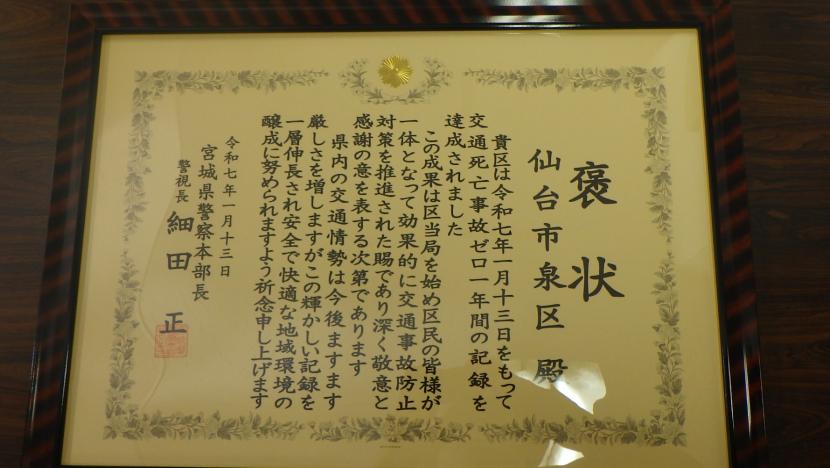 褒状
仙台市泉区 殿
貴区は令和七年一月十三日をもって
交通死亡事故ゼロ一年間の記録を
達成されました
この成果は区当局を始め区民の皆様が
一体となって効果的に交通事故防止
対策を推進された賜であり深く敬意と
感謝の意を表する次第であります
県内の交通情勢は今後ますます
厳しさを増しますがこの輝かしい記録を
一層伸長され安全で快適な地域環境の
醸成に努められますよう祈念申し上げます
令和七年一月十三日
宮城県警察本部長
警視長 細田 正